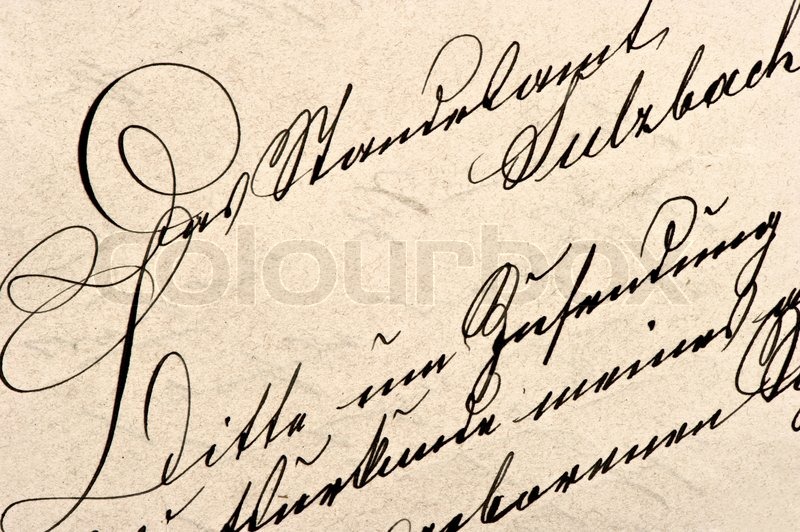 Das Standesamt
Sulzbach
Bitte um Zusendung
Geburtsurkunde meines
geborenen
colourbox